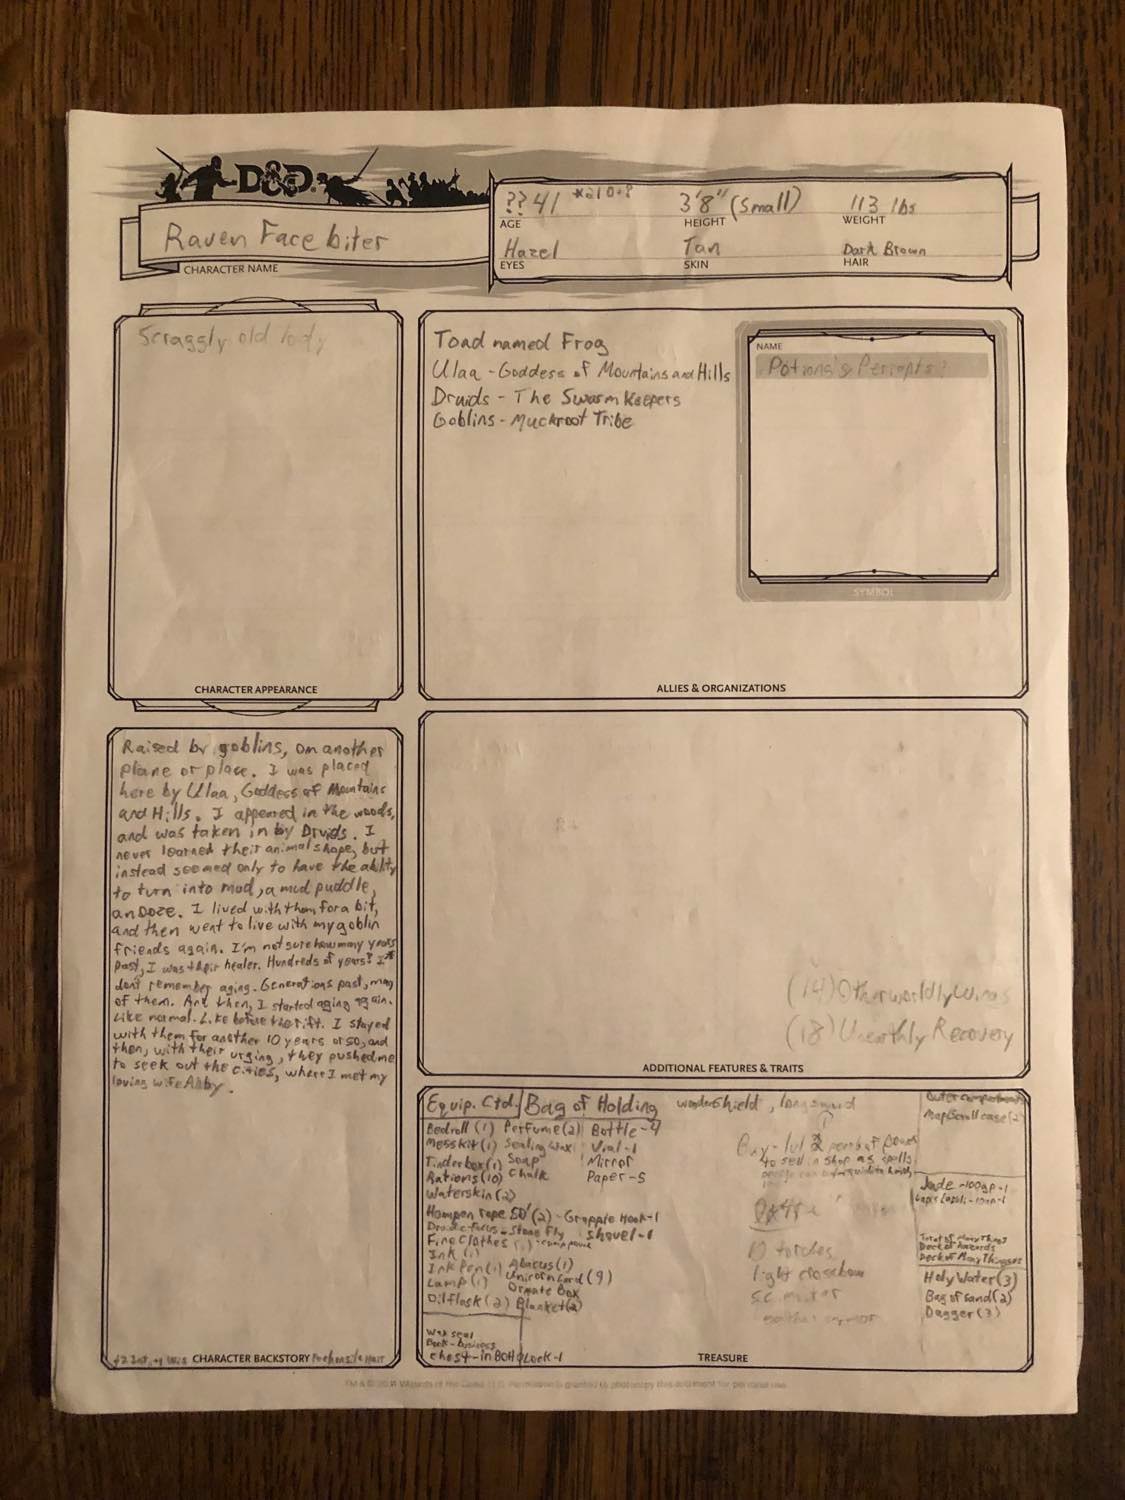 D&D
Raven Facebiter
CHARACTER NAME
?? 41
AGE
3'8" (Small)
HEIGHT
113 lbs
WEIGHT
Hazel
EYES
Tan
SKIN
Dark Brown
HAIR
Scraggly old
CHARACTER APPEARANCE
Toad named Frog
Ulaa - Goddess of Mountains and Hills
Druids - The Swarm Keepers
Goblins - Muckroot Tribe
NAME
SYMBOL
ALLIES & ORGANIZATIONS
Raised by goblins, on another
plane or place. I was placed
here by Ulaa, Goddess of Mountains
and Hills. I appeared in the woods,
and was taken in by Druids. I
never learned their animal shape, but
instead seemed only to have the ability
to turn into mud, a mud puddle,
an Ooze. I lived with them for a bit,
and then went to live with my goblin
friends again. I'm not sure how many years
past, I was their healer. Hundreds of years? I
don't remember aging. Generations past, many
of them. And then, I started aging again.
Like normal. Like before the rift. I stayed
with them for another 10 years or so, and
then, with their urging, they pushed me
to seek out the cities, where I met my
loving wife Abby.
CHARACTER BACKSTORY
(14) Otherworldly Wings
(18) Unearthly Recovery
ADDITIONAL FEATURES & TRAITS
Equip. Ctd. Bag of Holding wooden shield, longsword
Bedroll (1) Perfume (2) Bottle - 4
Messkit (1) Sealing Wax Vial - 1
Tinderbox (1) Soap Mirror
Rations (10) Chalk Paper - 5
Waterskin (2)
Hempen rope 50' (2) - Grapple Hook - 1
Druidic focus - Stone Fly shovel - 1
Fine Clothes (1)
Ink (1)
Ink Pen (1) Abacus (1)
Lamp (1) Unicorn Card (9)
Ornate Box
Oil flask (2) Blanket (2)
Wax seal
Book - business
Chest - in BOH Lock - 1
to sell in shop as spells
10 torches
light crossbow
Outer compartment
Map/Scroll case (2)
Jade - 100gp - 1
Tarot of Many Things
Deck of Hazards
Deck of Many Things
Holy Water (3)
Bag of sand (2)
Dagger (3)
TREASURE